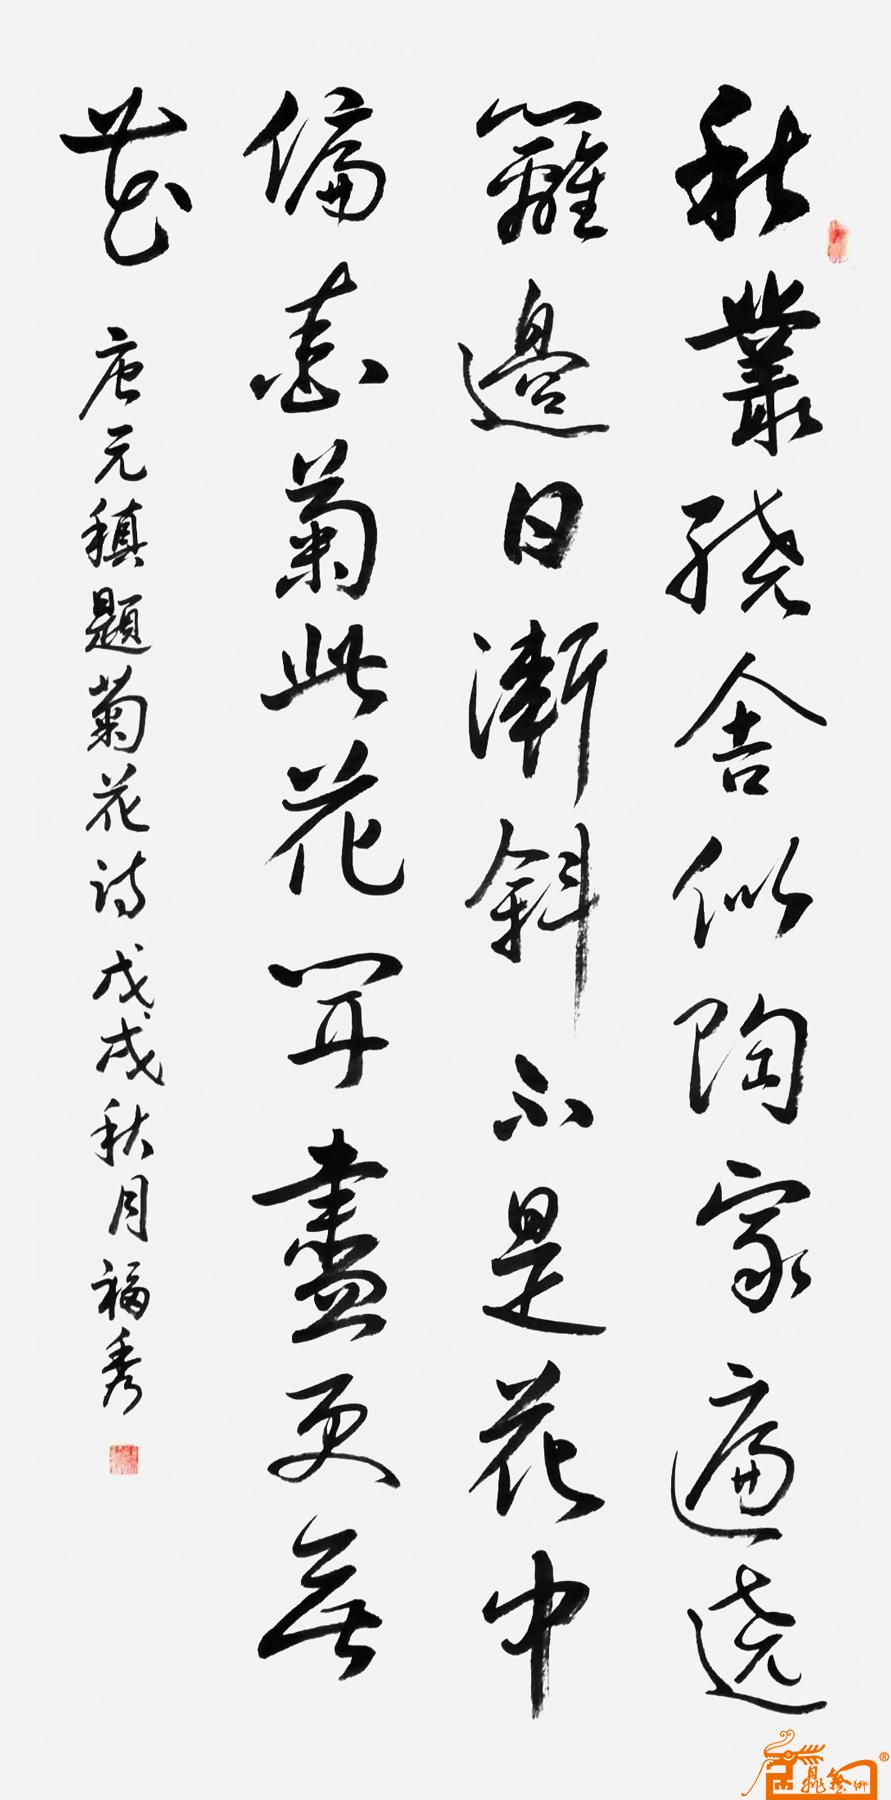 秋叢繞舍似陶家遍遶
籬邊日漸斜不是花中
偏愛菊此花開盡更無
花
唐元稹題菊花詩戊戌秋月福秀